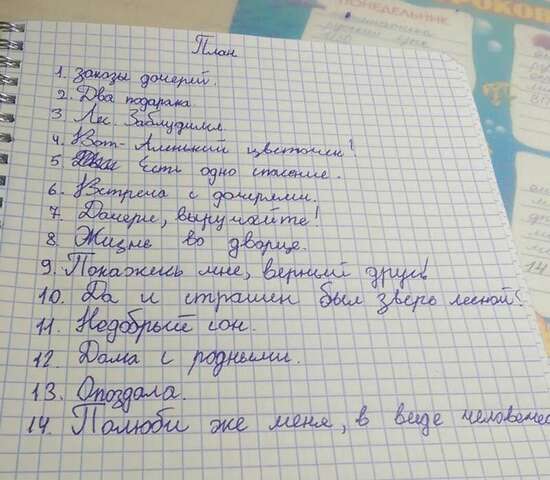 ПОНЕДЕЛЬНИК
План
1. Заказы дочерей.
2. Два подарка
3 Лес. Заблудился
4. Вот - Аленький цветочек!
5 Есть одно спасение.
6. Встреча с дочерями.
7. Дочери, выручайте!
8. Жизнь во дворце.
9. Покажись мне, верный друг!
10. Да и страшен был зверь лесной!
11. Недобрый сон.
12. Дома с родными.
13. Опоздала.
14. Полюби же меня, в виде